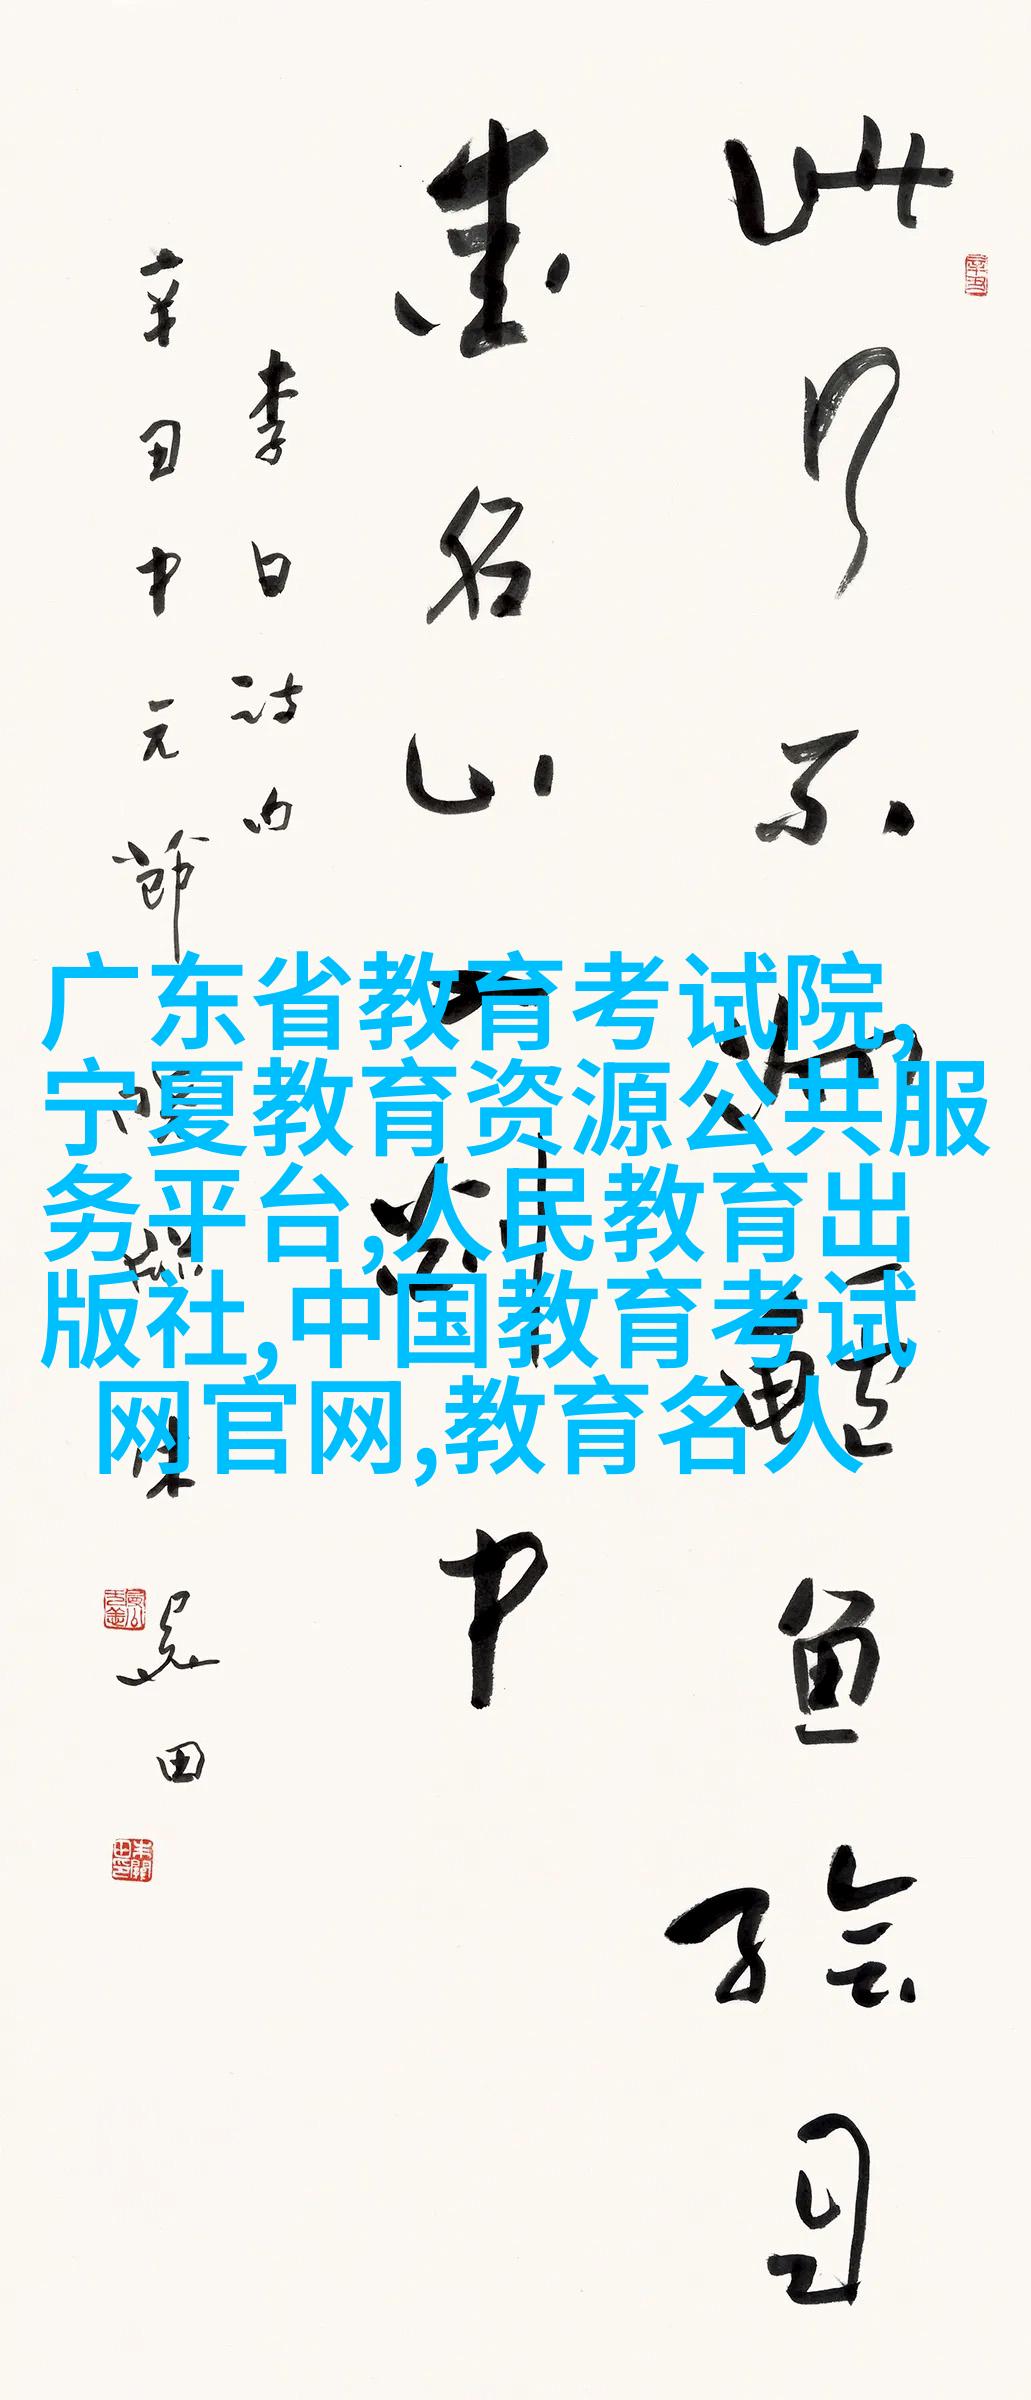 此行不为鲈鱼绘自
爱名山入剡中
李白诗句
辛丑中元節朱关田
广东省教育考试院,
宁夏教育资源公共服
务平台,人民教育出
版社,中国教育考试
网官网,教育名人